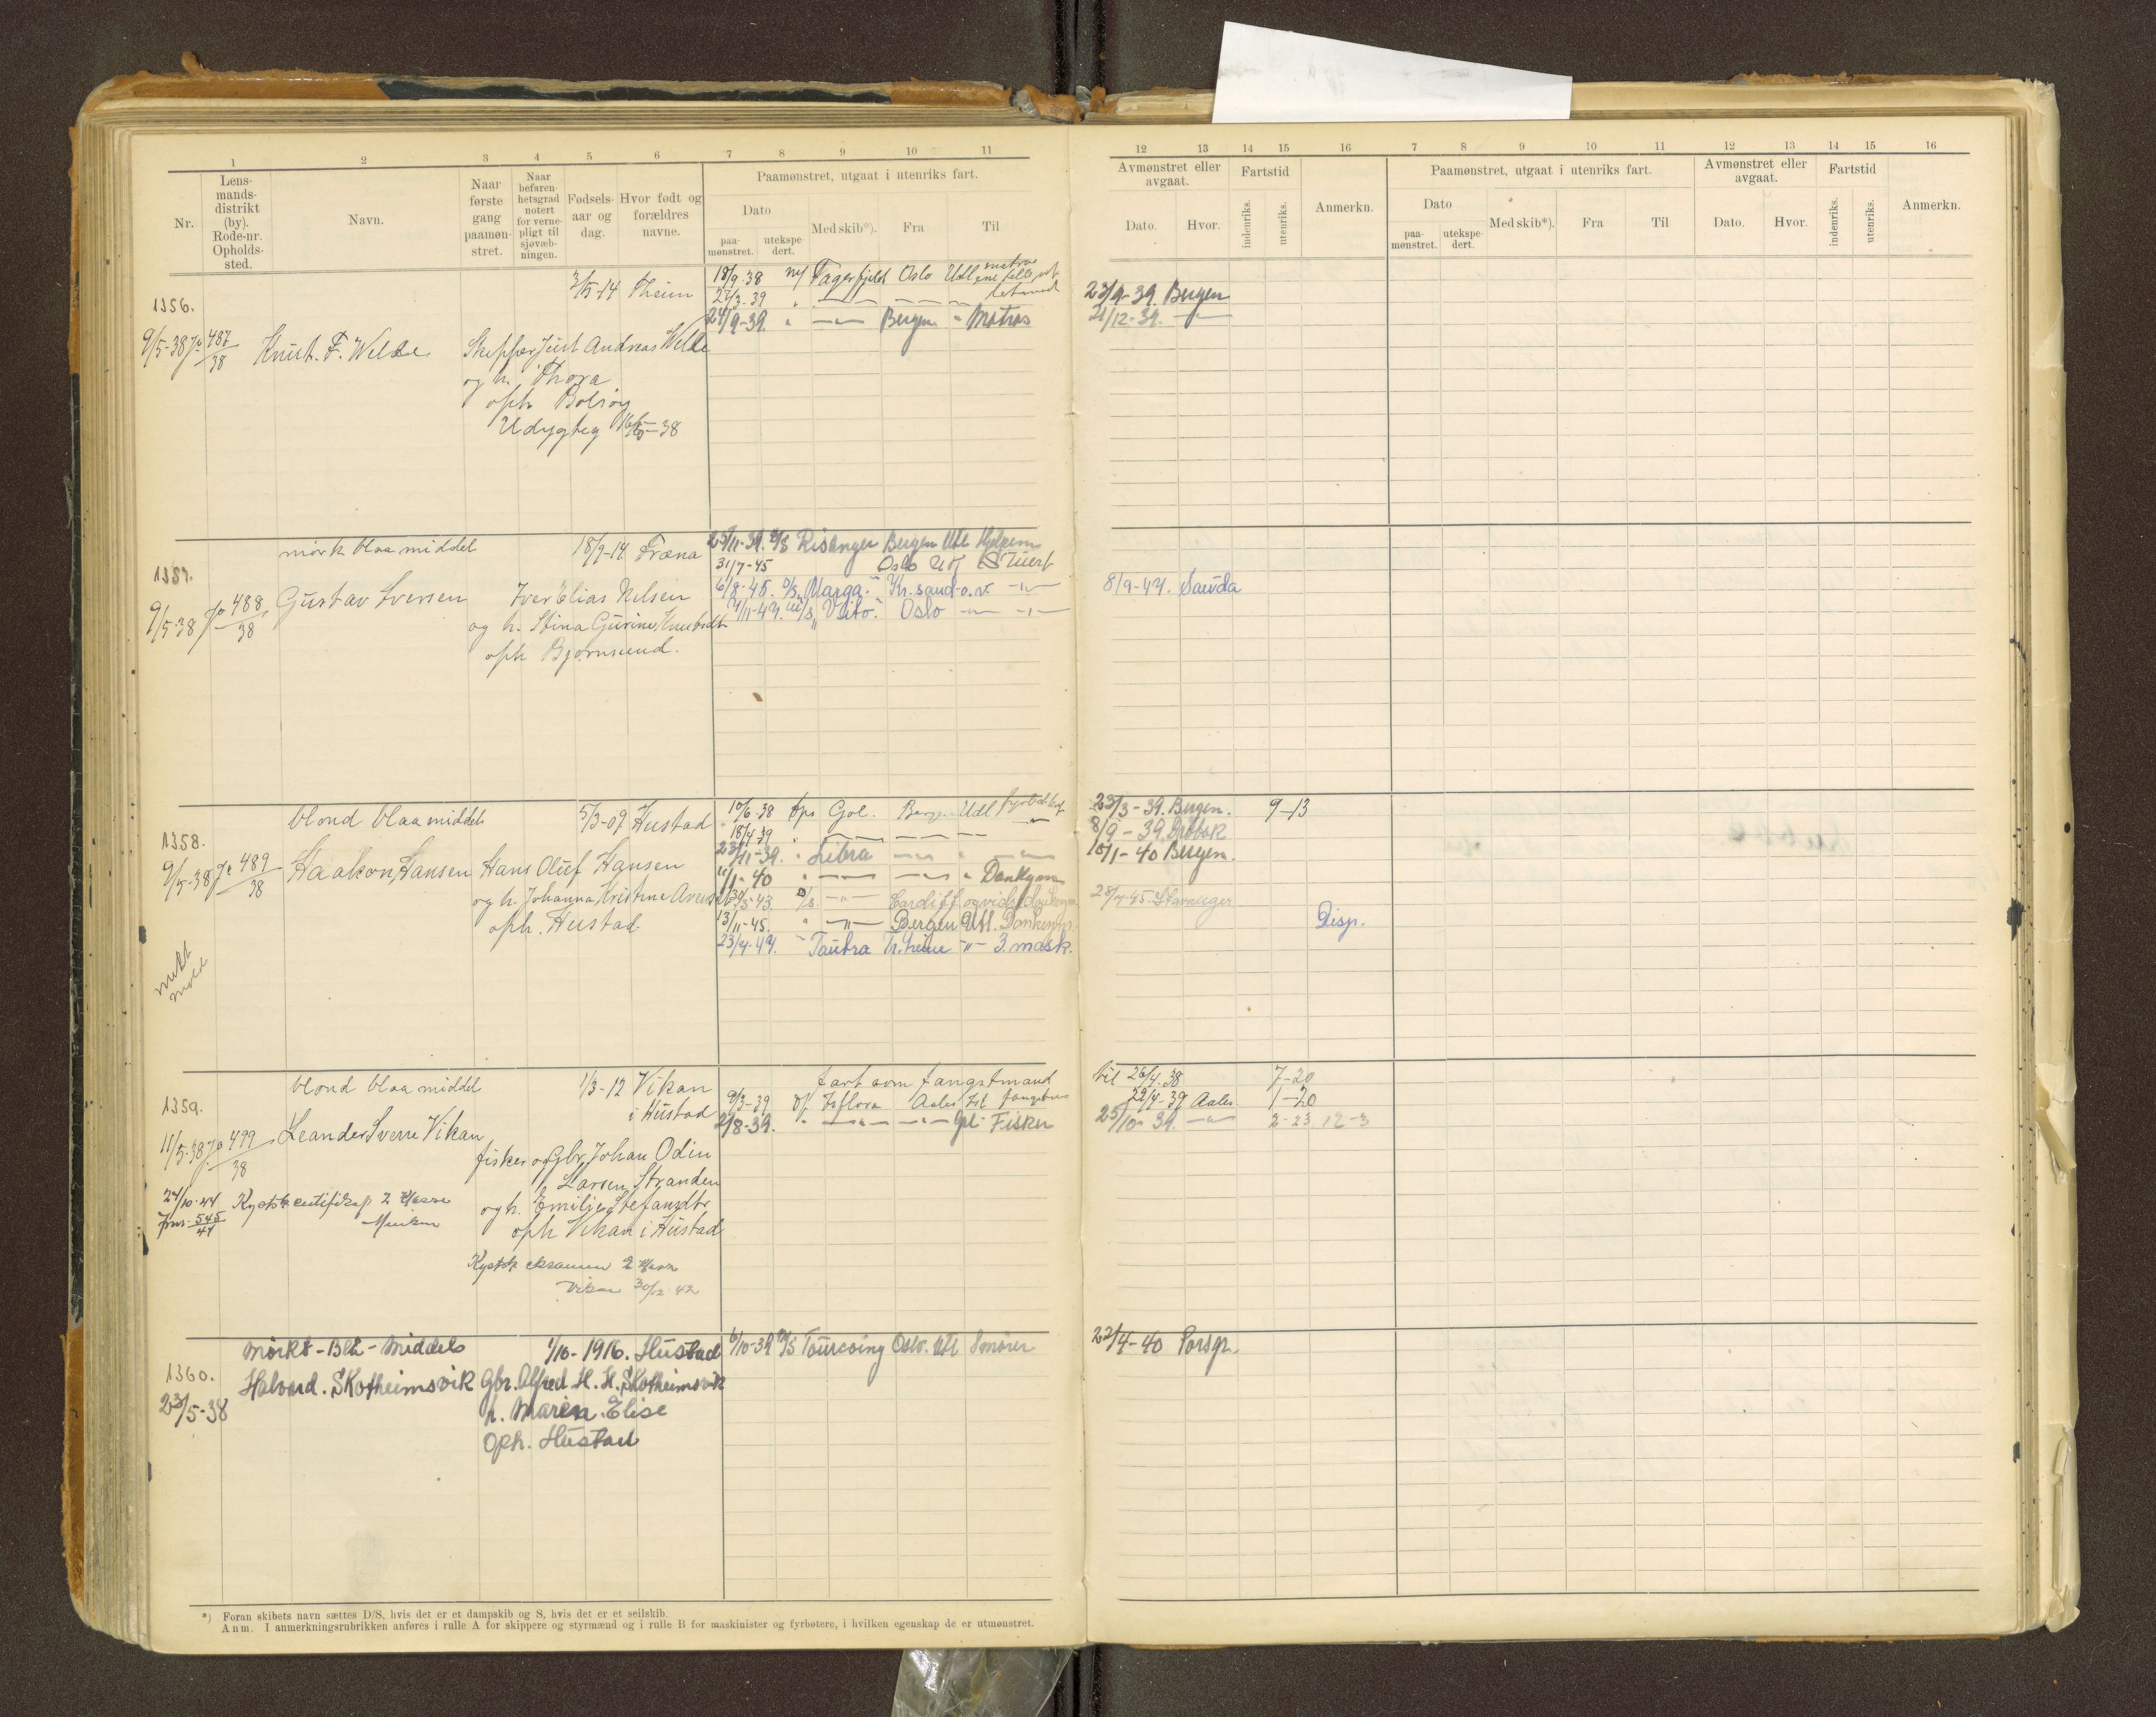 1 2 3 4 5 6 7 8 9 10 11
Nr.
Lens-
mands-
distrikt
(by).
Rode-nr.
Opholds-
sted.
Navn.
Naar
første
gang
paamøn-
stret.
Naar
befaren-
hetsgrad
notert
for verne-
pligt til
sjøvæb-
ningen.
Fødsels-
aar og
dag.
Hvor født og
forældres
navne.
Paamønstret, utgaat i utenriks fart.
Dato
paa-
mønstret.
utekspe
dert.
Med skib*).
Fra
Til
12 13 14 15 16 7 8 9 10 11 12 13 14 15 16
Avmønstret eller
avgaat.
Dato.
Hvor.
Fartstid
indenriks.
utenriks.
Anmerkn.
Paamønstret, utgaat i utenriks fart.
Dato
paa-
mønstret.
utekspe
dert.
Med skib*).
Fra
Til
Avmønstret eller
avgaat.
Dato.
Hvor.
Fartstid
indenriks.
utenriks.
Anmerkn.
3/5-14 Theim
18/9-38 Fagerfjeld Oslo Utl
27/3-39 "
24/9-39 " Bergen " Matros
23/9-39. Bergen
21/12-39.
1356.
9/5-38 487/38 Knut. F. Welde
Skipper Just Andreas Welde
og h. Thora
oph Bolsøy
Udygtig 16/5-38
mørk blaa middel 18/9-14 Fræna
25/11-39. Risanger Bergen Utl
31/7-45 Oslo Utl Stuert
6/8-45. D/S Marga. Kr.sand
4/11-47. M/S Vito. Oslo
8/9-47. Sauda
1357.
9/5-38 488/38 Gustav Iversen
Iver Elias Nilsen
og h. Stina Gurine Knutsdtr
oph Bjørnsund.
blond blaa middels 5/3-07 Hustad
10/6-38 Gol. Bergen Utl
18/4-39
23/11-39. " Libra
11/1-40 " Donkym
30/3-43. D/s. Cardiff og videre
13/11-45. Bergen Utl. Donkeym.
23/7-47. Tautra Tr.heim 3. mask.
23/3-39. Bergen. 9-13
8/9-39.
10/1-40 Bergen.
28/7-45 Stavanger
Disp.
1358.
9/5-38 489/38 Haakon Hansen
Hans Oluf Hansen
og h. Johanna Kristine
oph. Hustad
blond blaa middel 1/3-12 Vikan
i Hustad
fart som fangstmand
9/3-39 Isflora Aales Isl
2/8-39. Fisker
til 26/4-38 7-20
22/4-39 Aales 1-20
25/10-39. 2-23 12-3
1359.
11/5-38 499/38 Leander Sverre Vikan
fisker og Gbr. Johan Odin
Larsen Stranden
og h. Emilie Stefansdtr
oph Vikan i Hustad
24/10-44 2 klasse
jnr. 545/44
Kystsk eksamen 2 klasse
Vikan 30/12 42
mørkt - Blå - Middels 1/10-1916. Hustad
6/10-39 M/S Tourcoing Oslo. Utl Smører
22/4-40 Porsgr.
1360.
23/5-38
Halvard. Skotheimsvik
Gbr. Alfred H. H. Skotheimsvik
h. Maren. Elise
oph. Hustad
*) Foran skibets navn sættes D/S, hvis det er et dampskib og S, hvis det er et seilskib.
Anm. I anmerkningsrubrikken anføres i rulle A for skippere og styrmænd og i rulle B for maskinister og fyrbøtere, i hvilken egenskap de er utmønstret.